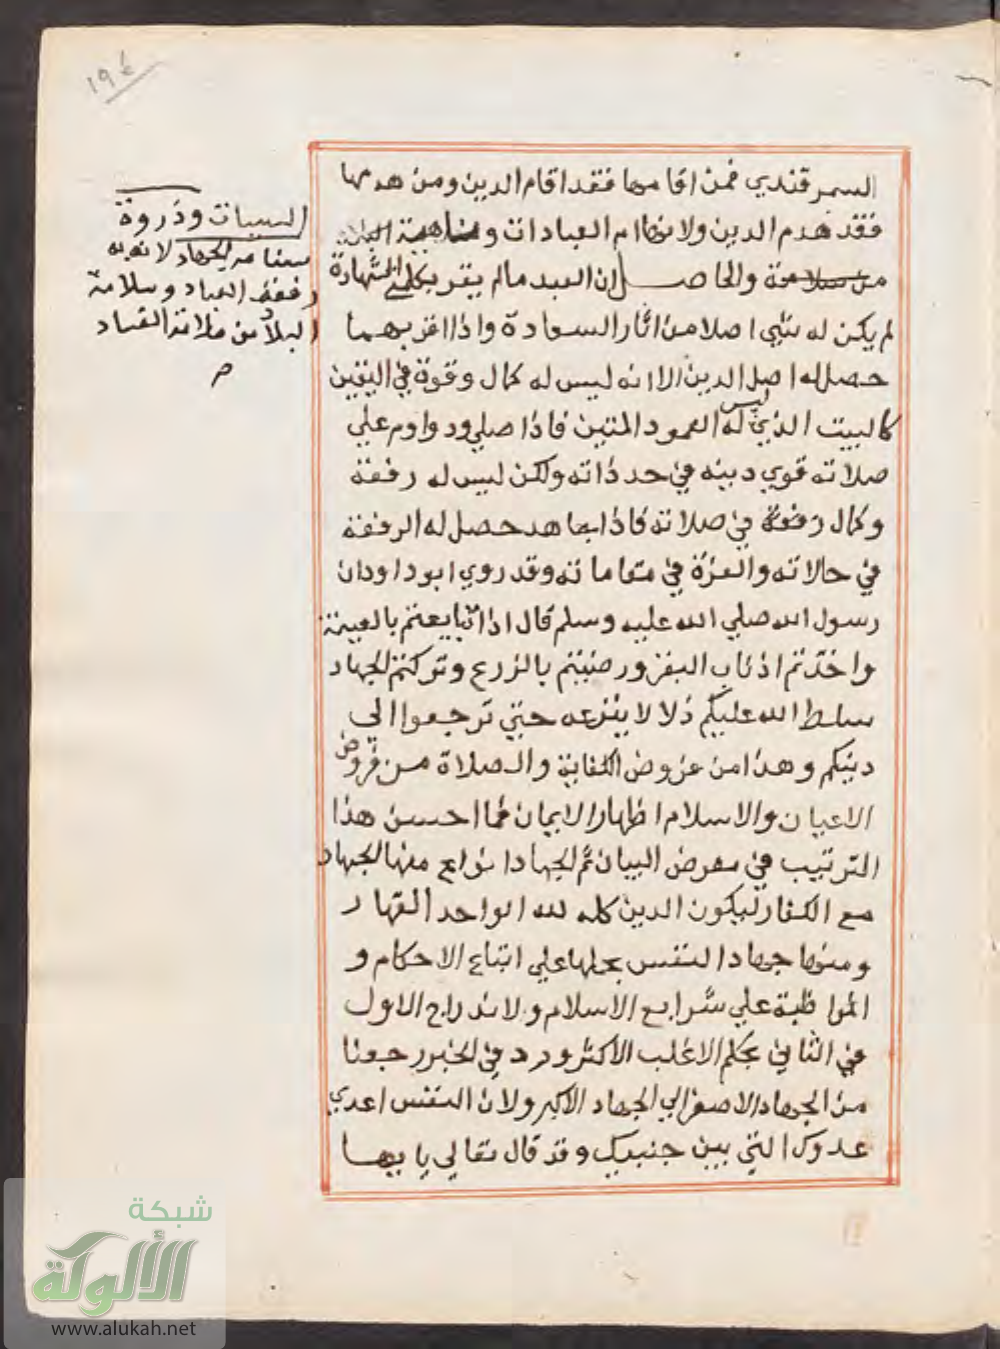 ١٩٤
السمرقندي فمن اقامها فقد اقام الدين ومن هدمها
فقد هدم الدين ولانها ام العبادات وناهية
والحاصل ان العبد مالم يقر بكلمتي الشهادة
لم يكن له شي اصلا من اثار السعادة واذا اقر بهما
حصل له اصل الدين الا انه ليس له كمال وقوة في اليقين
كالبيت الذي ليس له العمود المتين فاذا صلي ودوام علي
صلاته قوي دينه في حد ذاته ولكن ليس له رفعة
وكمال رفعة في صلاته فاذا جاهد حصل له الرفعة
في حالاته والعزة في مقاماته وقد روي ابو داود ان
رسول الله صلي الله عليه وسلم قال اذا تبايعتم بالعينة
واخذتم اذناب البقر ورضيتم بالزرع وتركتم الجهاد
سلط الله عليكم ذلا لا ينزعه حتي ترجعوا الي
دينكم وهذا من عروض الكفاية والصلاة من فروض
الاعيان والاسلام اظهار الايمان فما احسن هذا
الترتيب في معرض البيان ثم الجهاد انواع منها الجهاد
مع الكفار ليكون الدين كله لله الواحد القهار
ومنها جهاد النفس بحملها علي اتباع الاحكام و
المواظبة علي شرايع الاسلام ولاندراج الاول
في الثاني بحكم الاغلب الاكثر ورد في الخبر رجعنا
من الجهاد الاصغر الي الجهاد الاكبر ولان النفس اعدي
عدوك التي بين جنبيك وقد قال تعالي يا ايها
السيات وذروة
سنامه الجهاد لانه به
رفعة العباد وسلامة
البلاد من
م
شبكة
الألوكة
www.alukah.net